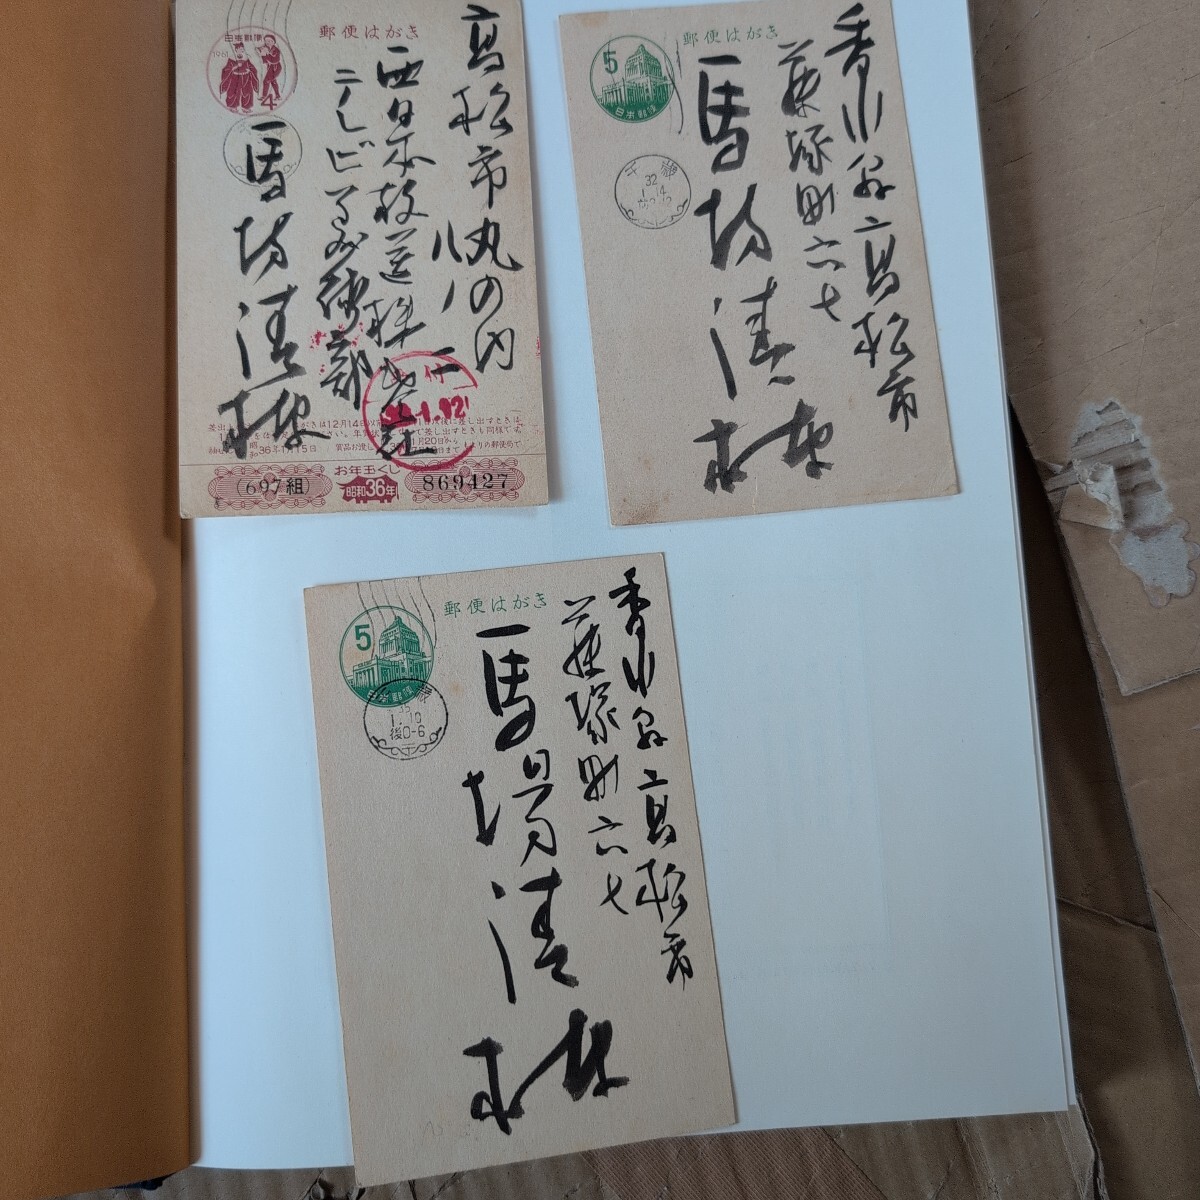 郵便はがき
日本郵便
1961
4
高松市丸の内
八ノ一
西日本放送株式会社
テレビ
馬場清様
1.12
36年1月15日
お年玉くじ
(697組)
昭和36年
869427
郵便はがき
5
日本郵便
千歳
32
1.14
香川県高松市
藤塚町六七
馬場清様
郵便はがき
5
日本郵便
歳
35
1.10
後0-6
香川県高松市
藤塚町六七
馬場清様